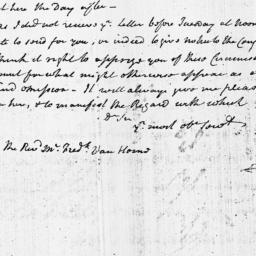 here the Day after —
as I did not receive yr. Letter before Tuesday at Noon
to send for you, or indeed to give notice to the Cong
think it right to apprize you of these Circumst
ount for what might otherwise appear as a
ind omission — It will always give me pleas
her, & to manifest the Regard with which
Dr. Sir
yr. most obt. servt.
The Revd. Mr. Fredk. Van Horne